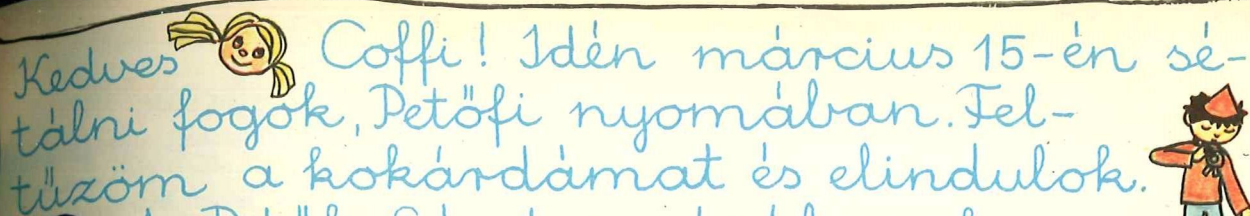 Kedves Coffi! Idén március 15-én sé-
tálni fogok, Petőfi nyomában. Fel-
tűzöm a kokárdámat és elindulok.